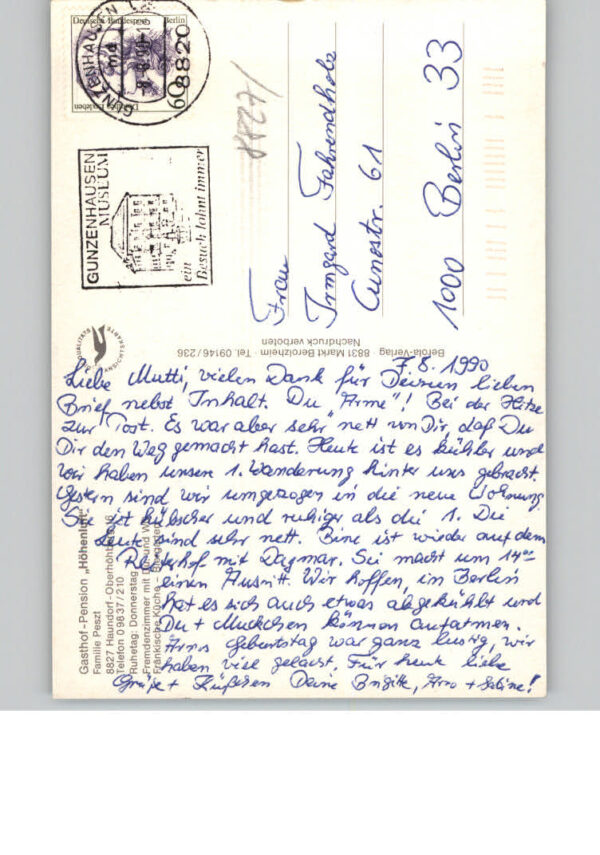 Deutsche Bundespost Berlin
GUNZENHAUSEN 1
8820
GUNZENHAUSEN
MUSEUM
ein
Besuch lohnt immer
8827/
Frau
Irmgard Fahrendholz
Cunostr. 61
1000 Berlin 33
QUALITÄTS
ANSICHTSKARTE
Berola-Verlag · 8831 Markt Berolzheim · Tel. 09146/236
Nachdruck verboten
7.8.1990
Liebe Mutti, vielen Dank für Deinen lieben
Brief nebst Inhalt. Du "Arme"! Bei der Hitze
zur Post. Es war aber sehr nett von Dir, daß Du
Dir den Weg gemacht hast. Heute ist es kühler und
wir haben unsere 1. Wanderung hinter uns gebracht.
Gestern sind wir umgezogen in die neue Wohnung.
Sie ist hübscher und ruhiger als die 1. Die
Leute sind sehr nett. Bine ist wieder auf dem
Reiterhof mit Dagmar. Sie macht um 14⁰⁰
einen Ausritt. Wir hoffen, in Berlin
hat es sich auch etwas abgekühlt und
Du + Muckchen können aufatmen.
Arnos Geburtstag war ganz lustig, wir
haben viel gelacht. Für heute liebe
Grüße + Küßchen Deine Brigitte, Arno + Sabine!
Gasthof-Pension „Höhenluft"
Familie Peszt
8827 Haundorf-Oberhöhberg
Telefon 09837/210
Ruhetag: Donnerstag
Fremdenzimmer mit Du und W
Fränkische Küche